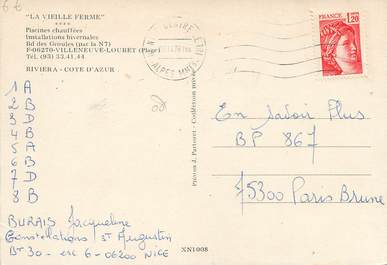 6€
"LA VIEILLE FERME"
****
Piscines chauffées
Installations hivernales
Bd des Groules (par la N7)
F-06270-VILLENEUVE-LOUBET (Plage)
Tél. (93) 33.41.44
RIVIERA - COTE D'AZUR
1 A
2 B
3 D
4 B
5 A
6 B
7 D
8 B
BURAIS Jacqueline
Constellations St Augustin
Bt 30 - esc 6 - 06200 NICE
ALPES MMES
Photos J. Partouet - Collection privée
XN1008
FRANCE
1,20
En Savoir Plus
BP 867
75300 Paris Brune